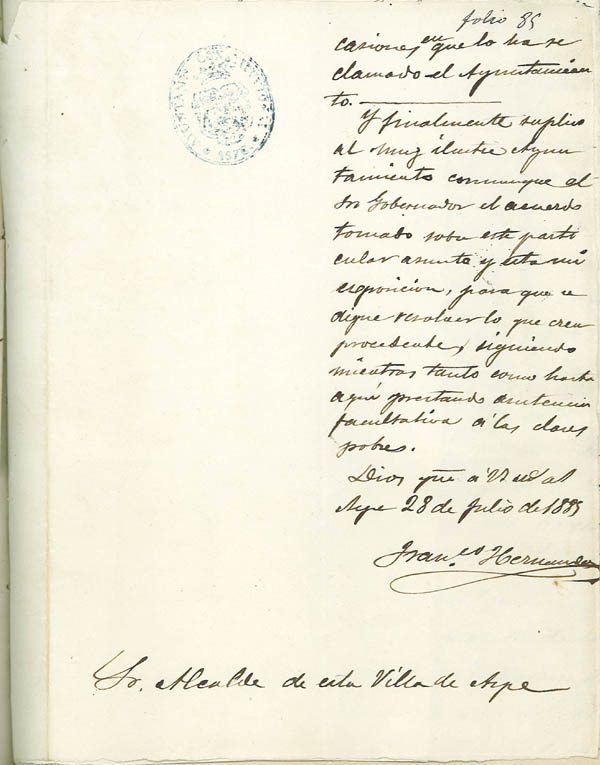 folio 85
casiones en que lo ha re
clamado el Ayuntamien
to.
Y finalmente suplico
al muy ilustre Ayun
tamiento comunique al
Sr Gobernador el acuerdo
tomado sobre este parti
cular asunto y esta mi
esposicion, para que se
digne resolver lo que crea
procedente, siguiendo
mientras tanto como hasta
aquí prestando asistencia
facultativa á las clases
pobres.
Dios gue á V
Aspe 28 de Julio de 1885
Franco Hernandez
Sr. Alcalde de esta Villa de Aspe